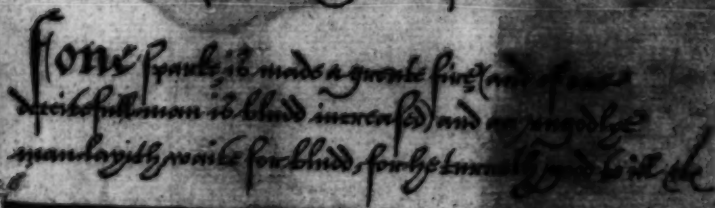 f one sparke is made a greate fire (and of one
deceitfull man is bludd increased) and an ungodlye
man layith waite for bludd, for he turneth good to ill